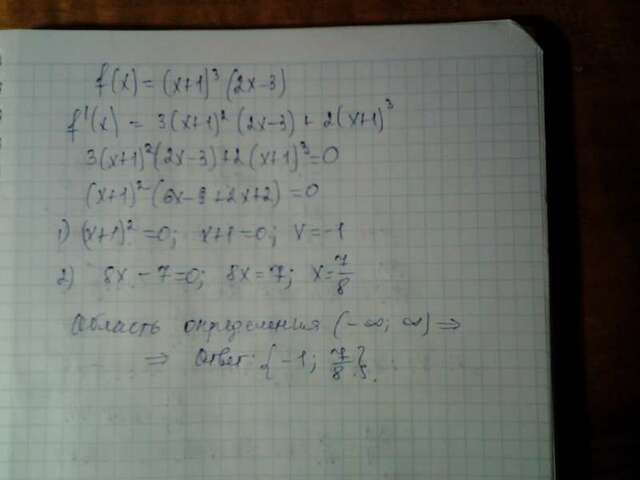 f(x) = (x+1)³ (2x-3)
f'(x) = 3(x+1)² (2x-3) + 2(x+1)³
3(x+1)²(2x-3)+2(x+1)³=0
(x+1)² (6x-9+2x+2) = 0
1) (x+1)² =0; x+1=0; x=-1
2) 8x - 7=0; 8x=7; x=7/8
Область определения (-∞; ∞) ⇒
⇒ Ответ: {-1; 7/8}.